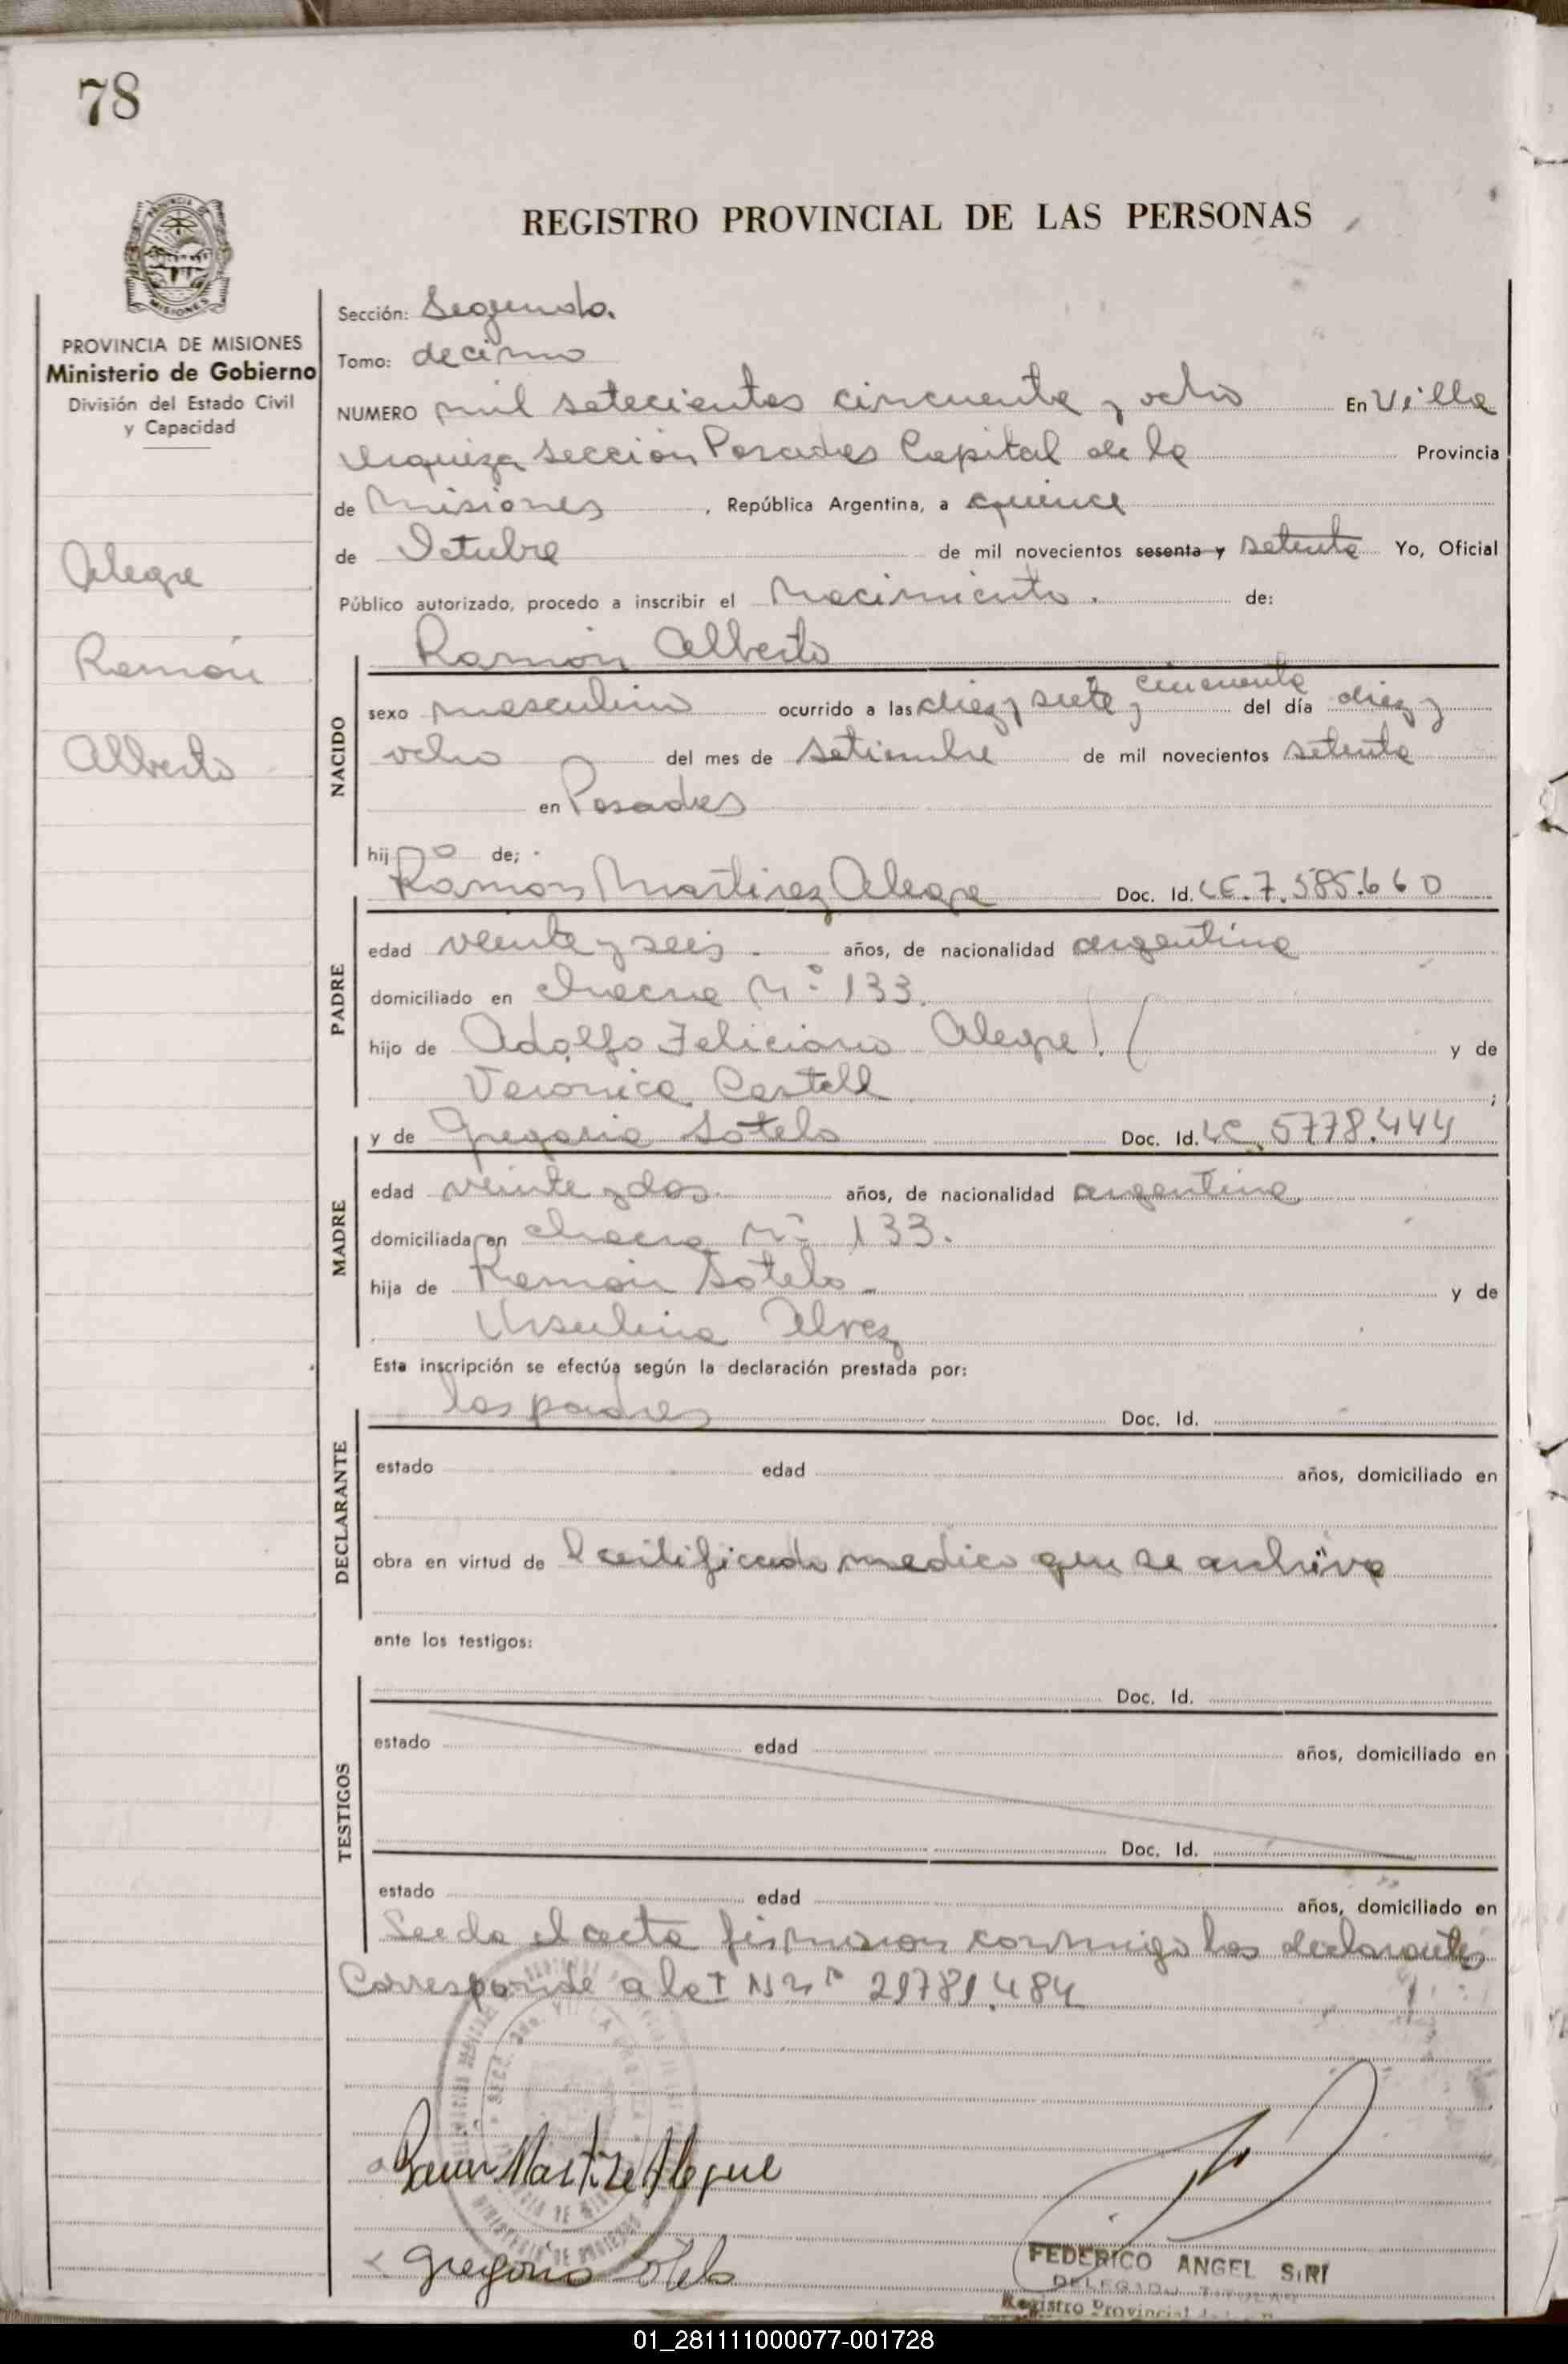 78
REGISTRO PROVINCIAL DE LAS PERSONAS
PROVINCIA DE MISIONES
Ministerio de Gobierno
División del Estado Civil
y Capacidad
Alegre
Ramón
Alberto
Sección: Segunda.
Tomo: decimo
NUMERO mil setecientos cincuenta y ocho En Villa
Urquiza sección Posadas Capital de la Provincia
de Misiones, República Argentina, a quince
de Octubre de mil novecientos sesenta y setenta Yo, Oficial
Público autorizado, procedo a inscribir el Nacimiento. de:
Ramón Alberto
NACIDO
sexo masculino ocurrido a las diez y siete y cincuenta del día diez y
ocho del mes de setiembre de mil novecientos setenta
en Posadas
hijo de;
Ramon Martirez Alegre Doc. Id. LE. 7.585.660
PADRE
edad veinte y seis. años, de nacionalidad argentina
domiciliado en chacra Nº 133.
hijo de Adolfo Feliciano Alegre. y de
Veronica Castell ;
y de Gregoria Sotelo Doc. Id. LC. 5778.444
MADRE
edad veinte y dos. años, de nacionalidad argentina
domiciliada en chacra Nº 133.
hija de Ramón Sotelo - y de
Ursulina Alvez
Esta inscripción se efectúa según la declaración prestada por:
los padres Doc. Id.
DECLARANTE
estado edad años, domiciliado en
obra en virtud de l certificado medico que se archiva
ante los testigos:
TESTIGOS
Doc. Id.
estado edad años, domiciliado en
Doc. Id.
estado edad años, domiciliado en
Leeda el acta firmaron conmigo los declarantes
Corresponde a la I N Nº 21781.484
Ramon Martirez Alegre
Gregoria Sotelo
FEDERICO ANGEL SIRI
DELEGADO TITULAR
Registro Provincial
01_281111000077-001728